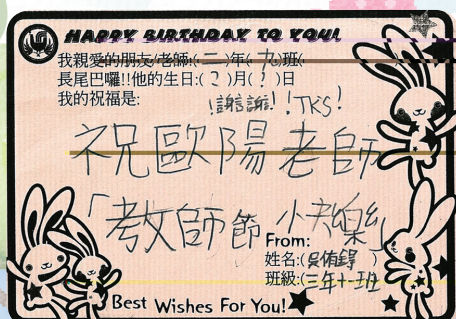 HAPPY BIRTHDAY TO YOU!
我親愛的朋友/老師:(二)年(九)班(
長尾巴囉!!他的生日:(?)月(?)日
我的祝福是:
!謝謝!!TKS!
祝歐陽老師
「教師節 小快樂」
From:
姓名:(吳侑錚)
班級:(三年十一班
Best Wishes For You!